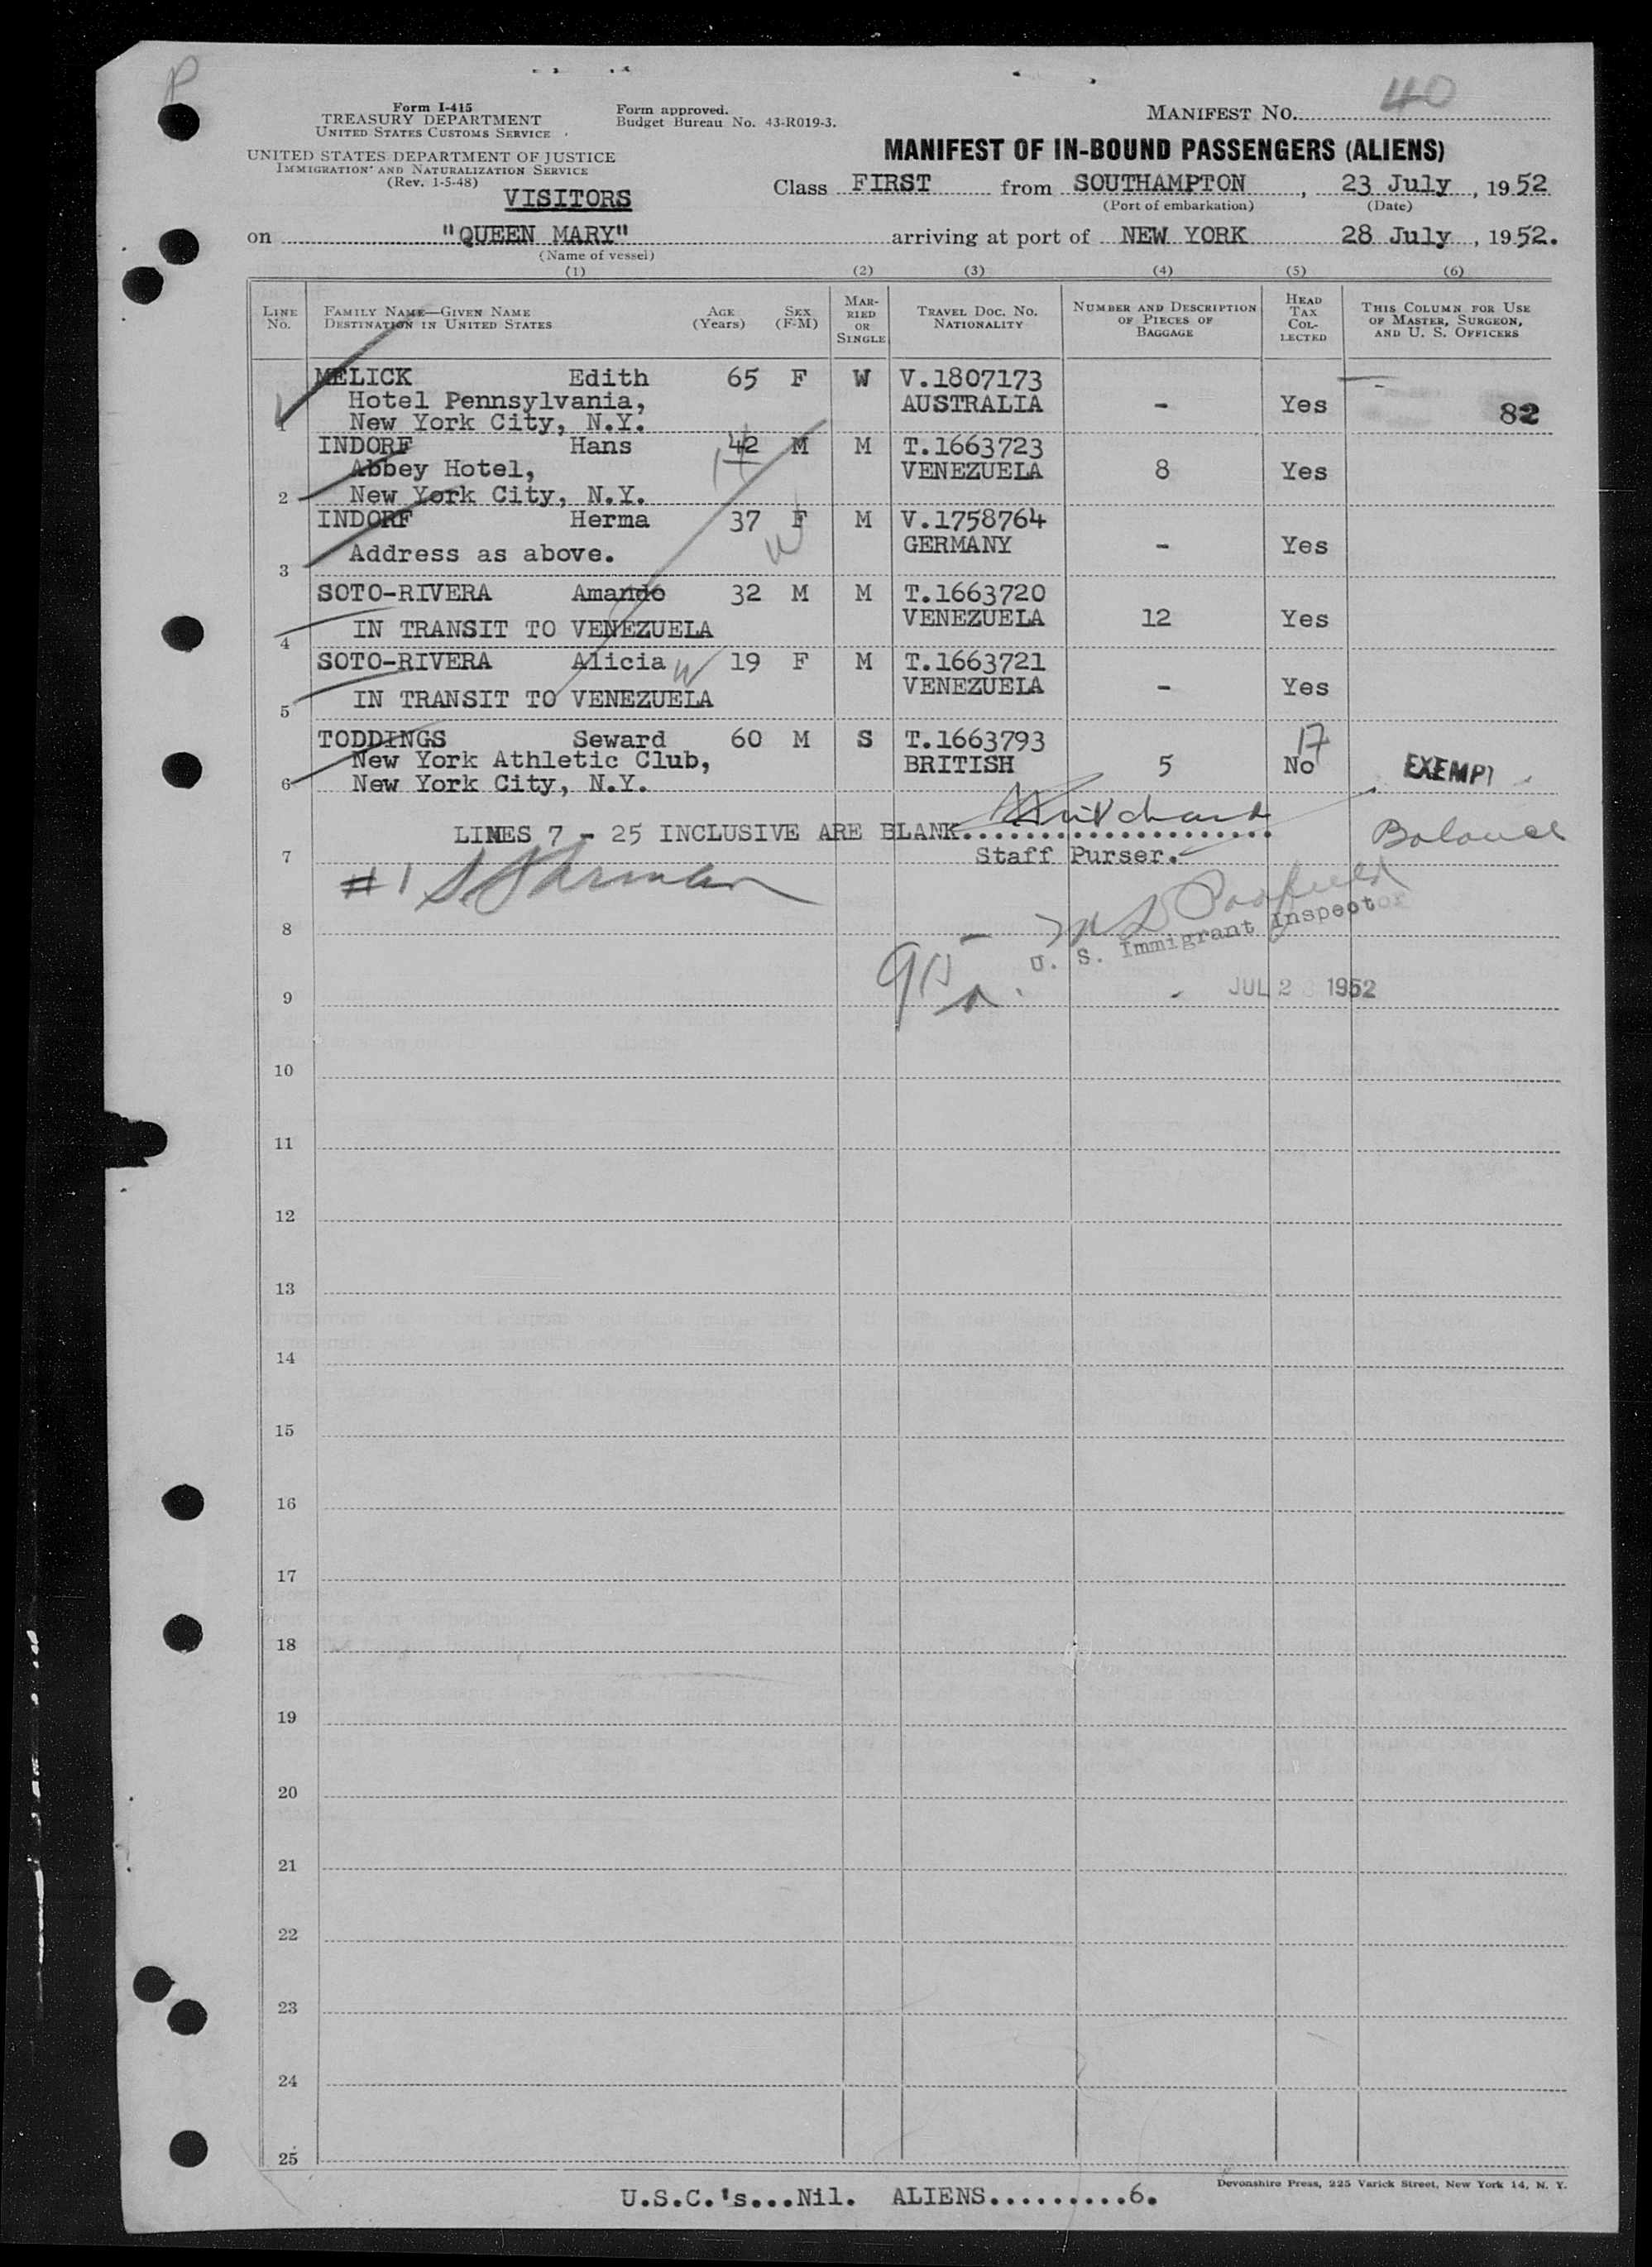 P
Form I-415
TREASURY DEPARTMENT
UNITED STATES CUSTOMS SERVICE
Form approved.
Budget Bureau No. 43-R019-3.
MANIFEST NO. 40
UNITED STATES DEPARTMENT OF JUSTICE
IMMIGRATION AND NATURALIZATION SERVICE
(Rev. 1-5-48)
MANIFEST OF IN-BOUND PASSENGERS (ALIENS)
VISITORS
Class FIRST from SOUTHAMPTON, 23 July, 1952
(Port of embarkation) (Date)
on "QUEEN MARY" arriving at port of NEW YORK 28 July, 1952.
(Name of vessel)
(1) (2) (3) (4) (5) (6)
LINE No. FAMILY NAME—GIVEN NAME DESTINATION IN UNITED STATES AGE (Years) SEX (F-M) MARRIED OR SINGLE TRAVEL DOC. NO. NATIONALITY NUMBER AND DESCRIPTION OF PIECES OF BAGGAGE HEAD TAX COLLECTED THIS COLUMN FOR USE OF MASTER, SURGEON, AND U. S. OFFICERS
MELICK Edith 65 F W V.1807173
Hotel Pennsylvania, AUSTRALIA - Yes 82
1 New York City, N.Y.
INDORF Hans 42 M M T.1663723
Abbey Hotel, VENEZUELA 8 Yes
2 New York City, N.Y.
INDORF Herma 37 F M V.1758764
Address as above. GERMANY - Yes
3
SOTO-RIVERA Amando 32 M M T.1663720
IN TRANSIT TO VENEZUELA VENEZUELA 12 Yes
4
SOTO-RIVERA Alicia 19 F M T.1663721
IN TRANSIT TO VENEZUELA VENEZUELA - Yes
5
TODDINGS Seward 60 M S T.1663793 17
New York Athletic Club, BRITISH 5 No EXEMPT
6 New York City, N.Y.
LINES 7 - 25 INCLUSIVE ARE BLANK....................
7 Staff Purser.
#1
8 U. S. Immigrant Inspector
9 JUL 28 1952
10
11
12
13
14
15
16
17
18
19
20
21
22
23
24
25
Devonshire Press, 225 Varick Street, New York 14, N. Y.
U.S.C.'s...Nil. ALIENS..........6.